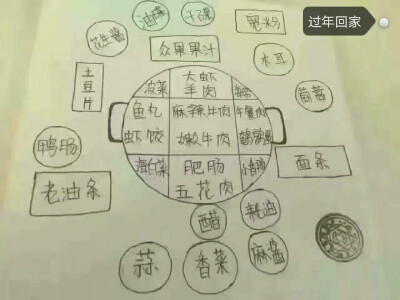 过年回家
油碟
干碟
宽粉
花生酱
众果果汁
木耳
土豆片
菠菜
大虾
羊肉
茼蒿
鱼丸
麻辣牛肉
午餐肉
虾饺
嫩牛肉
鹌鹑蛋
鸭肠
海白菜
肥肠
面条
老油条
五花肉
醋
耗油
蒜
香菜
麻酱